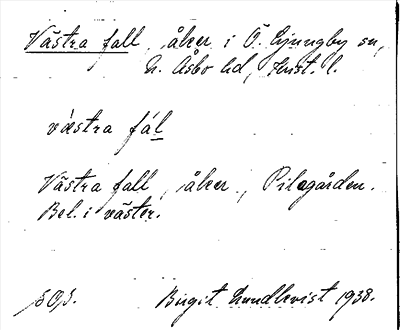 Västra fall, åker i Ö. Ljungby sn,
N. Åsbo hd, Krist. l.
västra fál
Västra fall, åker, Pilagården.
Bel. i väster.
Birgit Lundkvist 1938.